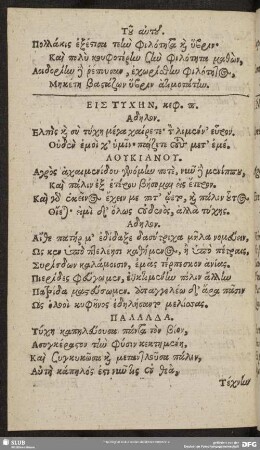 Τοῦ αὐτοῦ.
Πολλάκις ἐξέτεσα τεὴν φιλότητα καὶ ὕβριν·
Καὶ πολὺ κουφοτέρην σὴν φιλότητα μαθὼν,
Λοιδορίην ἢ ῥίπτουσαν, ἐχωρίσθην φιλότητος,
Μηκέτι βαστάζων ὕβριν
ΕΙΣ ΤΥΧΗΝ, κεφ. π.
Ἄδηλον.
Ἐλπὶς καὶ σὺ τύχη μέγα χαίρετε· τ λιμέν' εὗρον.
Οὐδὲν ἐμοὶ χ' ὑμῖν· παίζετε τοὺς μετ' ἐμέ.
ΛΟΥΚΙΑΝΟΥ.
Ἀγρὸς Ἀχαιμενίδου γενόμην ποτὲ, νῦν δὲ Μενίππου,
Καὶ πάλιν ἐξ ἑτέρου βήσομαι εἰς ἕτερον.
Καὶ γὰρ ἐκεῖνος ἔχειν με ποτ' ᾤετο, καὶ πάλιν οὗτος
Οἴεται· εἰμὶ δ' ὅλως οὐδενὸς, ἀλλὰ τύχης.
Ἄδηλον.
Αἴθε πατήρ μ' ἐδίδαξε δασύτριχα μῆλα νομεύειν,
Ὥς κεν ὑπὸ πτελέῃσι καθήμενος, ἢ ὑπὸ πέτραις,
Συρίσδων καλάμοισιν, ἐμὰς τέρπεσκον ἀνίας.
Πιερίδες φεύγωμεν, ἐϋκτιμένην πόλιν ἄλλην
Πατρίδα μαστεύσωμεν. ἀπαγγελέω δ' ἄρα πᾶσιν
Ὡς ὀλοοὶ κηφῆνες ἐδηλήσαντο μελίσσας.
ΠΑΛΛΑΔΑ.
Τύχη καπηλεύουσα πάντα τὸν βίον,
Ἀσυγκέραστον τὴν φύσιν κεκτημένη,
Καὶ συγκυκῶσα καὶ μεταντλοῦσα πάλιν,
Αὐτὴ κάπηλός ἐστι νῦν τις οὐ θεὰ,
Τέχνην
SLUB
DFG